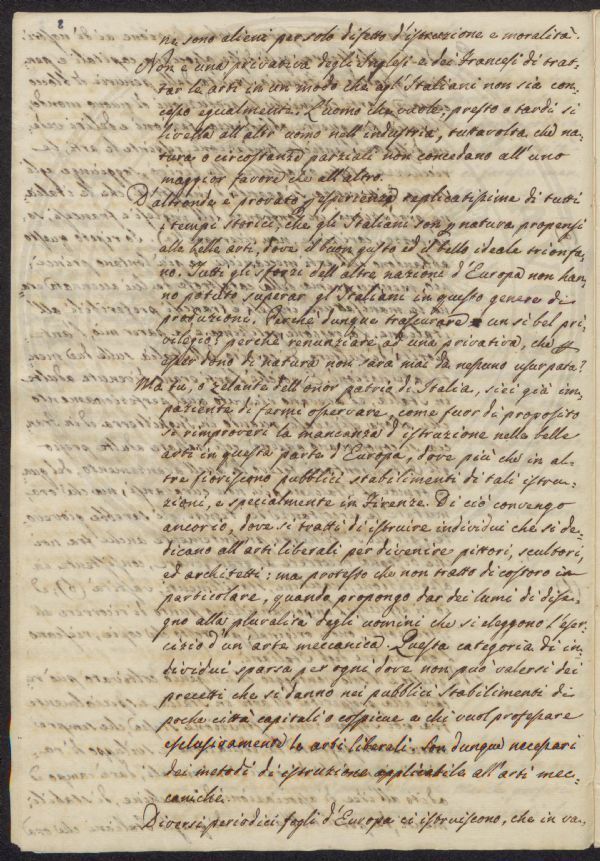 8
ne sono alieni per solo difetto d'istruzione e moralità.
Non è una privativa degli Inglesi e dei Francesi di trat-
tar le arti in un modo che agl'Italiani non sia con-
cesso egualmente. L'uomo che vuole, presto o tardi si
livella all'altr'uomo nell'industria, tuttavolta che na-
tura o circostanze parziali non concedano all'uno
maggior favore che all'altro.
D'altronde è provato esperienza replicatissima di tutti
i tempi storici, che gli Italiani son natura propensi
alle belle arti, dove il buon gusto ed il bello ideale trionfa-
no. Tutti gli sforzi dell'altre nazioni d'Europa non han-
no potuto superar gl'Italiani in questo genere di
produzioni. Perché dunque trascurare un sì bel pri-
vilegio? perché renunziare ad una privativa, che
esser dono di natura non sarà mai da nessuno usurpata?
Ma tu, o zelante dell'onor patrio d'Italia, siei già im-
paziente di farmi osservare, come fuor di proposito
si rimproveri la mancanza d'istruzione nelle belle
arti in questa parte d'Europa, dove più che in al-
tre fioriscono pubblici stabilimenti di tali istru-
zioni, e specialmente in Firenze. Di ciò convengo
ancor'io, dove si tratti di istruire individui che si de-
dicano all'arti liberali per divenire pittori, scultori,
ed architetti; ma protesto che non tratto di costoro in
particolare, quando propongo dar dei lumi di dise-
gno alla pluralità degli uomini che si eleggono l'eser-
cizio d'un'arte meccanica. Questa categoria di in-
dividui sparsa per ogni dove non può valersi dei
precetti che si danno nei pubblici stabilimenti di
poche città capitali o cospicue a chi vuol professare
esclusivamente le arti liberali. Son dunque necessari
dei metodi di istruzione applicabile all'arti mec-
caniche.
Diversi periodici fogli d'Europa ci istruiscono, che in va-